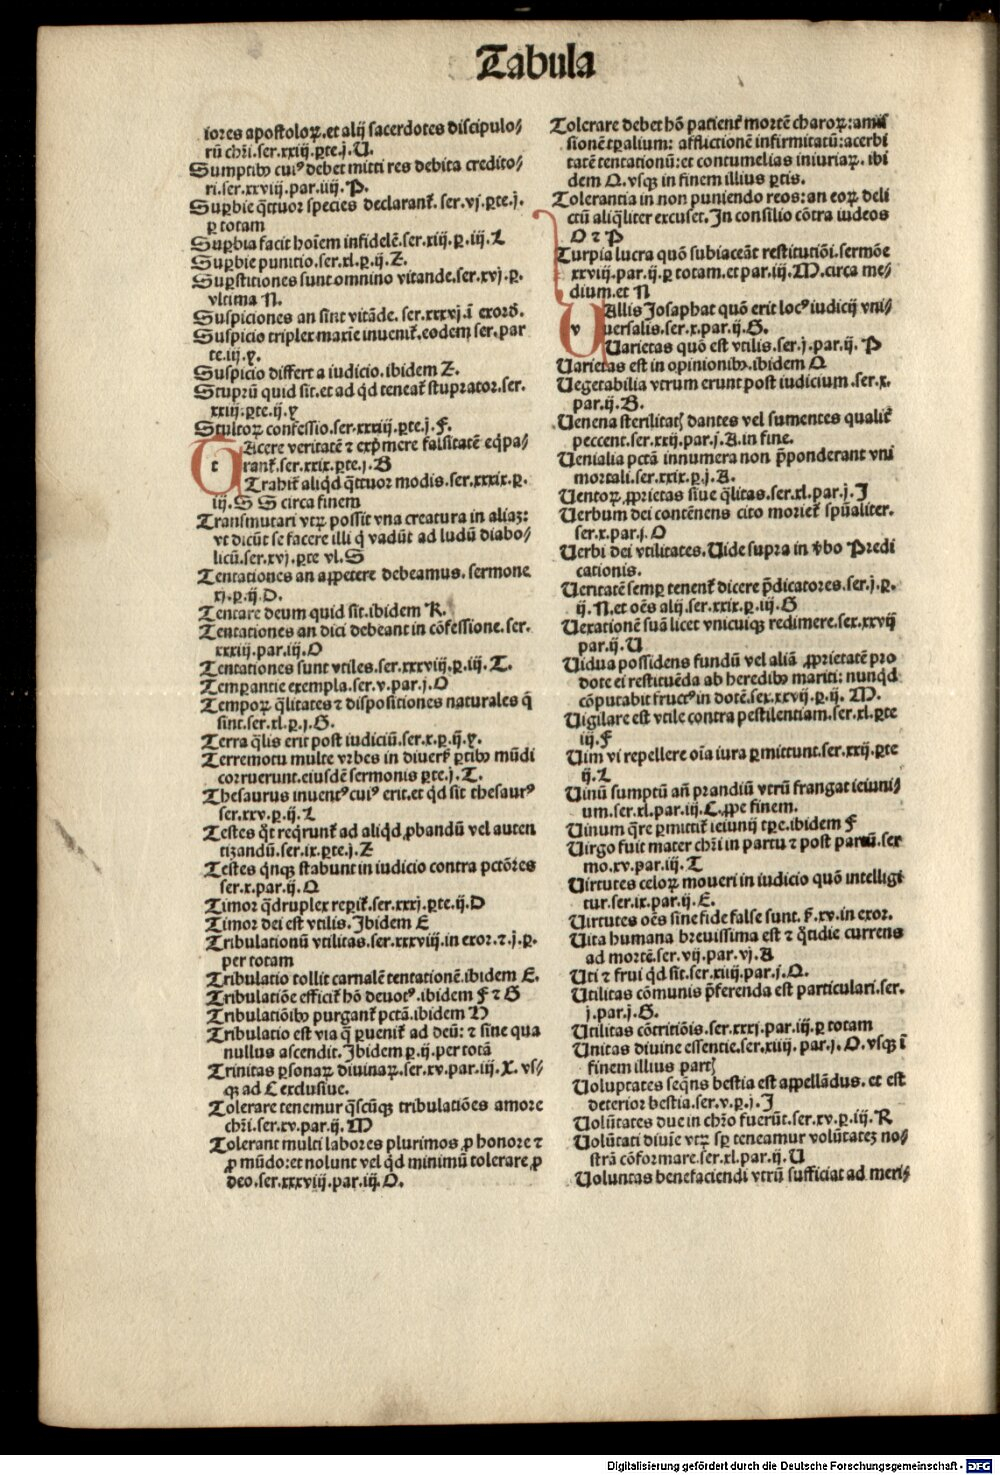 Tabula
iores apostoloꝝ.et alij sacerdotes discipulo⸗
rū chꝛi.ser.xxiij.ꝑte.j.U.
Sumptibꝰ cuiꝰ debet mitti res debita credito⸗
ri.ser.xxviij.par.iiij.P.
Suꝑbie q̄ttuor species declarant̄. ser.vj.ꝑte.j.
ꝑ totam
Suꝑbia facit hoīem infidelē.ser.xiij.ꝑ.iij.L
Suꝑbie punitio.ser.xl.ꝑ.ij.Z.
Suꝑstitiones sunt omnino vitande.ser.xvj.ꝑ.
vltima N.
Suspiciones an sint vitāde. ser.xxxvj.ī exord̄.
Suspicio triplex marie inuenit̄.eodem ser.par
te.iij.y.
Suspicio differt a iudicio.ibidem Z.
Stuprū quid sit.et ad qd̄ teneat̄ stuprator.ser.
xxiij.ꝑte.ij.y
Stultoꝝ confessio.ser.xxxiij.ꝑte.j.F.
TAcere veritatē ⁊ exp̄mere falsitatē eq̄pa⸗
rant̄.ser.xxix.ꝑte.j.B
Trahit̄ aliqd̄ q̄ttuor modis.ser.xxxix.ꝑ.
iij.S S circa finem
Transmutari vtꝝ possit vna creatura in aliaꝫ:
vt dicūt se facere illi q̄ vadūt ad ludū diabo⸗
licū.ser.xvj.ꝑte vl.S
Tentationes an appetere debeamus. sermone
xj.ꝑ.ij.D.
Tentare deum quid sit.ibidem R.
Tentationes an dici debeant in cōfessione.ser.
xxxiij.par.iij.O
Tentationes sunt vtiles.ser.xxxviij.ꝑ.iij.T.
Temꝑantie exempla.ser.v.par.j.O
Tempoꝝ q̄litates ⁊ dispositiones naturales q̄
sint.ser.xl.ꝑ.j.G.
Terra q̄lis erit post iudiciū.ser.x.ꝑ.ij.y.
Terremotu multe vrbes in diuers̄ ꝑtibꝰ mūdi
corruerunt.eiusdē sermonis ꝑte.j.T.
Thesaurus inuentꝰ cuiꝰ erit.et qd̄ sit thesaurꝰ
ser.xxv.ꝑ.ij.L
Testes q̄t reqrunt̄ ad aliqd̄ ꝓbandū vel auten
tizandū.ser.ix.ꝑte.j.Z
Testes qnqꝫ stabunt in iudicio contra pctōres
ser.x.par.ij.Q
Timor q̄druplex reꝑit̄.ser.xxxj.ꝑte.ij.D
Timor dei est vtilis. Ibidem E
Tribulationū vtilitas.ser.xxxviij.in exor.⁊.j.ꝑ.
per totam
Tribulatio tollit carnalē tentationē.ibidem E.
Tribulatiōe efficit̄ hō deuotꝰ.ibidem F ⁊ G
Tribulatiōibꝰ purgant̄ pctā.ibidem H
Tribulatio est via q̄ ꝑuenit̄ ad deū: ⁊ sine qua
nullus ascendit. Ibidem ꝑ.ij.per totā
Trinitas ꝑsonaꝝ diuinaꝝ.ser.xv.par.iij.X. vs⸗
qꝫ ad C exclusiue.
Tolerare tenemur q̄scūqꝫ tribulatiōes amore
chꝛi.ser.xv.par.ij.M
Tolerant multi labores plurimos ꝓ honore ⁊
ꝓ mūdo:et nolunt vel qd̄ minimū tolerare ꝓ
deo.ser.xxxviij.par.iij.O.
Tolerare debet hō patient̄ mortē charoꝝ:amis
sionē tꝑalium: afflictionē infirmitatū:acerbi
tatē tentationū:et contumelias iniuriaꝝ. ibi
dem Q.vsqꝫ in finem illius ꝑtis.
Tolerantia in non puniendo reos:an eoꝝ deli
ctū aliq̄liter excuset. In consilio cōtra iudeos
O ⁊ P
Turpia lucra quō subiaceāt restitutiōi.sermōe
xxviij.par.ij.ꝑ totam.et par.iij.M.circa me⸗
dium.et N
UAllis Josaphat quō erit locꝰ iudicij vni⸗
uersalis.ser.x.par.ij.G.
Uarietas quō est vtilis.ser.j.par.ij. P
Uarietas est in opinionibꝰ.ibidem Q
Uegetabilia vtrum erunt post iudicium.ser.x.
par.ij.B.
Uenena sterilitatꝭ dantes vel sumentes qualit̄
peccent.ser.xxij.par.j.A.in fine.
Uenialia pctā innumera non p̄ponderant vni
mortali.ser.xxix.ꝑ.j.A.
Uentoꝝ ꝓprietas siue q̄litas.ser.xl.par.j.I
Uerbum dei contēnens cito moriet̄ spūaliter.
ser.x.par.j.O
Uerbi dei vtilitates. Uide supra in v̄bo Predi
cationis.
Ueritatē semꝑ tenent̄ dicere p̄dicatores.ser.j.ꝑ.
ij.N.et oēs alij.ser.xxix.ꝑ.iij.G
Uexationē suā licet vnicuiqꝫ redimere.ser.xxvij
par.ij.U
Uidua possidens fundū vel aliā ꝓprietatē pro
dote ei restituēda ab heredibꝰ mariti: nunqd̄
cōputabit fructꝰ in dotē.ser.xxvij.ꝑ.ij. M.
Uigilare est vtile contra pestilentiam.ser.xl.ꝑte
iij.F
Uim vi repellere oīa iura ꝑmittunt.ser.xxij.ꝑte
ij.L
Uinū sumptū an̄ prandiū vtrū frangat ieiuni⸗
um.ser.xl.par.iij.C.ꝓpe finem.
Uinum q̄re ꝑmittit̄ ieiunij tꝑe.ibidem F
Uirgo fuit mater chꝛi in partu ⁊ post partū.ser
mo.xv.par.iij.T
Uirtutes celoꝝ moueri in iudicio quō intelligi
tur.ser.ix.par.ij.E.
Uirtutes oēs sine fide false sunt. s̄.xv.in exor.
Uita humana breuissima est ⁊ q̄tidie currens
ad mortē.ser.vij.par.vj.A
Uti ⁊ frui qd̄ sit.ser.xiiij.par.j.Q.
Utilitas cōmunis p̄ferenda est particulari.ser.
j.par.j.G.
Utilitas cōtritiōis.ser.xxxj.par.iij.ꝑ totam
Unitas diuine essentie.ser.xiiij.par.j.O.vsqꝫ ī
finem illius partꝭ
Uoluptates seqns bestia est appellādus. et est
deterior bestia.ser.v.ꝑ.j.I
Uolūtates due in chꝛo fuerūt.ser.xv.ꝑ.iij.R
Uolūtati diuīe vtꝝ sꝑ teneamur volūtateꝫ no⸗
strā cōformare.ser.xl.par.ij.U
Uoluntas benefaciendi vtrū sufficiat ad meri⸗
Digitalisierung gefördert durch die Deutsche Forschungsgemeinschaft - DFG